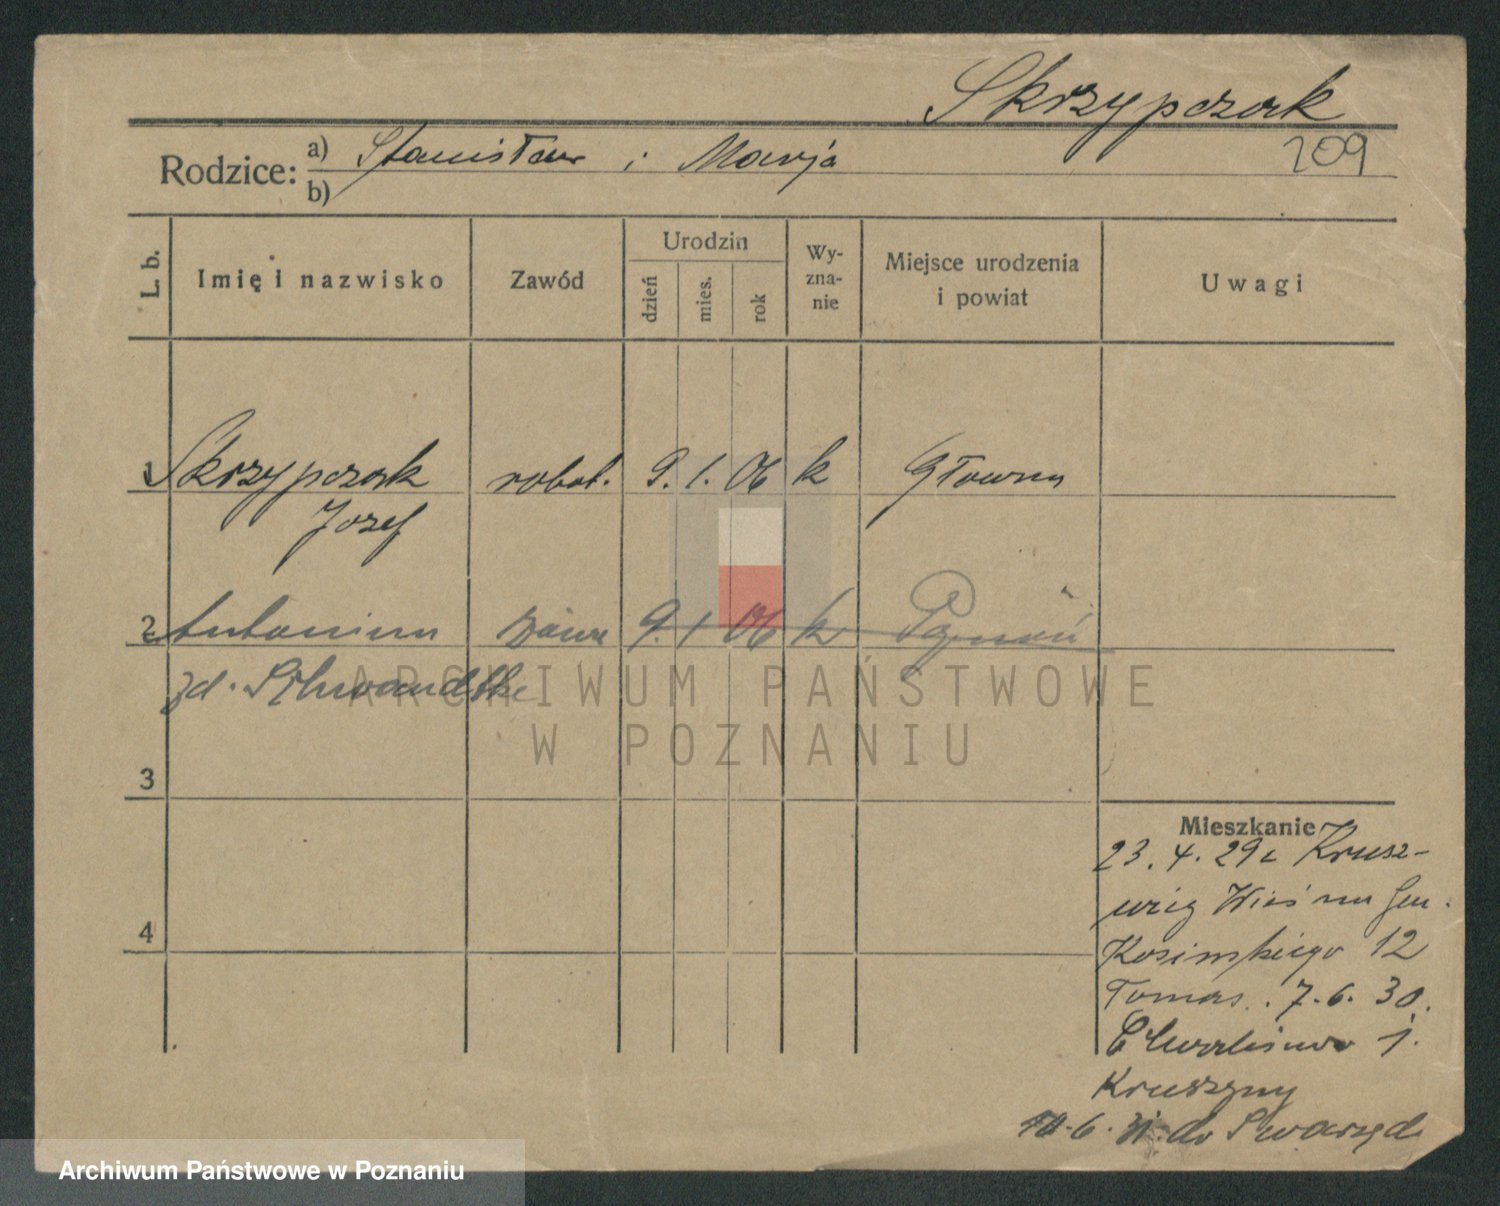 Skrzypczak
209
Rodzice: a) Stanisław i Marja
b)
L. b.
Imię i nazwisko
Zawód
Urodzin
dzień
mies.
rok
Wy-
zna-
nie
Miejsce urodzenia
i powiat
Uwagi
1 Skrzypczak robot. 9. 1. 06 k Główna
Jozef
2 Antonina 9. 1 06 k Poznań
zd.
ARCHIWUM PAŃSTWOWE
W POZNANIU
3
4
Mieszkanie
23. 4. 29 Krusz-
Wieś Gen.
Kosińskiego 12
7. 6. 30.
1.
Kruszyny
6. do Swarzędz
Archiwum Państwowe w Poznaniu